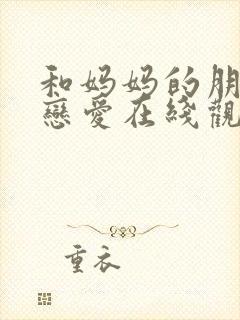 和妈妈的朋
戀愛在綫觀
重衣